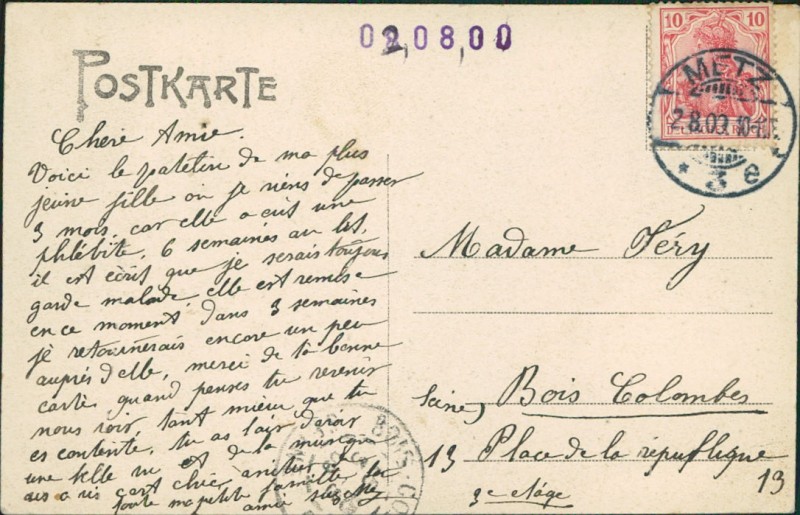 020800
POSTKARTE
10 10
METZ
2.8.09
* 3 e
Chere Amie.
Voici le patelin de ma plus
jeune fille ou je viens de passer
3 mois, car elle a eus une
phlébite, 6 semaines au lit,
il est ecris que je serais toujours
garde malade, elle est remise
en ce moment dans 3 semaines
je retournerais encore un peu
auprés d'elle, merci de ta bonne
carte quand penses tu revenir
nous voir, tant mieux que tu
es contente, tu as l'air d'avoir
une belle vue et de la musique
toute ma petite famille
amie
Madame Féry
Bois Colombes
Seine,
13 Place de la république
13
3e etáge
BOIS-CO